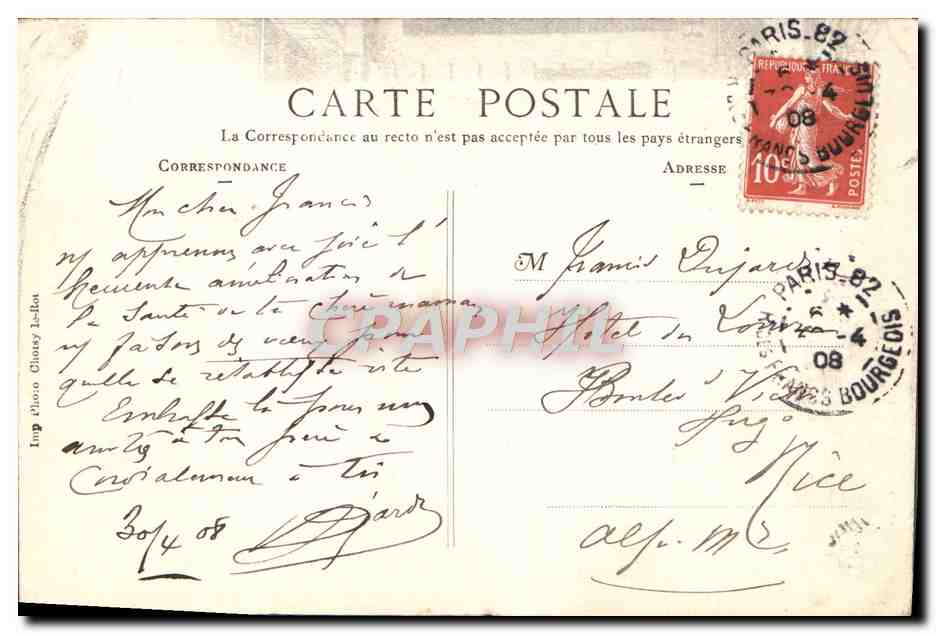 CARTE POSTALE
La Correspondance au recto n'est pas acceptée par tous les pays étrangers
CORRESPONDANCE
ADRESSE
Mon cher Francis
ns apprenons avec joie l'
heureuse amélioration de
la santé de ta chère maman
ns faisons des vœux pour
qu'elle se rétablisse vite
Embrasse la pour nous
amitiés à ton père &
Cordialement à toi
30/4 08
M Francis Dujardin
Hotel du
Bould Victor
Hugo
Nice
Alpes Mmes
REPUBLIQUE FRANC
10c
POSTES
PARIS-82
4
08
FRANCS BOURGEOIS
PARIS-82
4
08
R. DES FRANCS BOURGEOIS
Imp Photo Choisy le-Roi
CPAPHIL